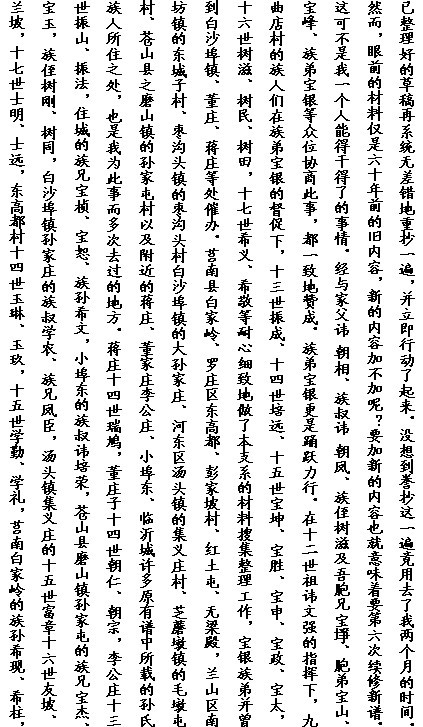 已整理好的草稿再系统无差错地重抄一遍，并立即行动了起来。没想到誊抄这一遍竟用去了我两个月的时间。
然而，眼前的材料仅是六十年前的旧内容，新的内容加不加呢？要加新的内容也就意味着要第六次续修新谱。
这可不是我一个人能得干得了的事情。经与家父讳 朝相、族叔讳 朝凤、族侄树滋及吾胞兄宝琤、胞弟宝山、
宝峰、族弟宝银等众位协商此事，都一致地赞成。族弟宝银更是踊跃力行。在十二世祖讳文强的指挥下，九
曲店村的族人们在族弟宝银的督促下，十三世振成、十四世培远、十五世宝坤、宝胜、宝申、宝政、宝太，
十六世树滋、树民、树田，十七世希义、希敬等耐心细致地做了本支系的材料搜集整理工作，宝银族弟并曾
到白沙埠镇、董庄、蒋庄等处催办。莒南县白家岭、罗庄区东高都、彭家坡村、红土屯、无梁殿，兰山区南
坊镇的东城子村、枣沟头镇的枣沟头村白沙埠镇的大孙家庄、河东区汤头镇的集义庄村、芝麻墩镇的毛墩屯
村、苍山县之磨山镇的孙家屯村以及附近的蒋庄、董家庄李公庄、小埠东、临沂城许多原有谱中所载的孙氏
族人所住之处，也是我为此事而多次去过的地方。蒋庄十四世瑞鸠，董庄子十四世朝仁、朝宗，李公庄十三
世振山、振法，住城的族兄宝桢、宝恕、族孙希文，小埠东的族叔讳培荣，苍山县磨山镇孙家屯的族兄宝杰、
宝玉，族侄树刚、树同，白沙埠镇孙家庄的族叔学农、族兄凤臣，汤头镇集义庄的十五世富章十六世友坡、
兰坡，十七世士明、士远，东高都村十四世玉琳、玉玖，十五世学勤、学礼，莒南白家岭的族孙希现、希柱，